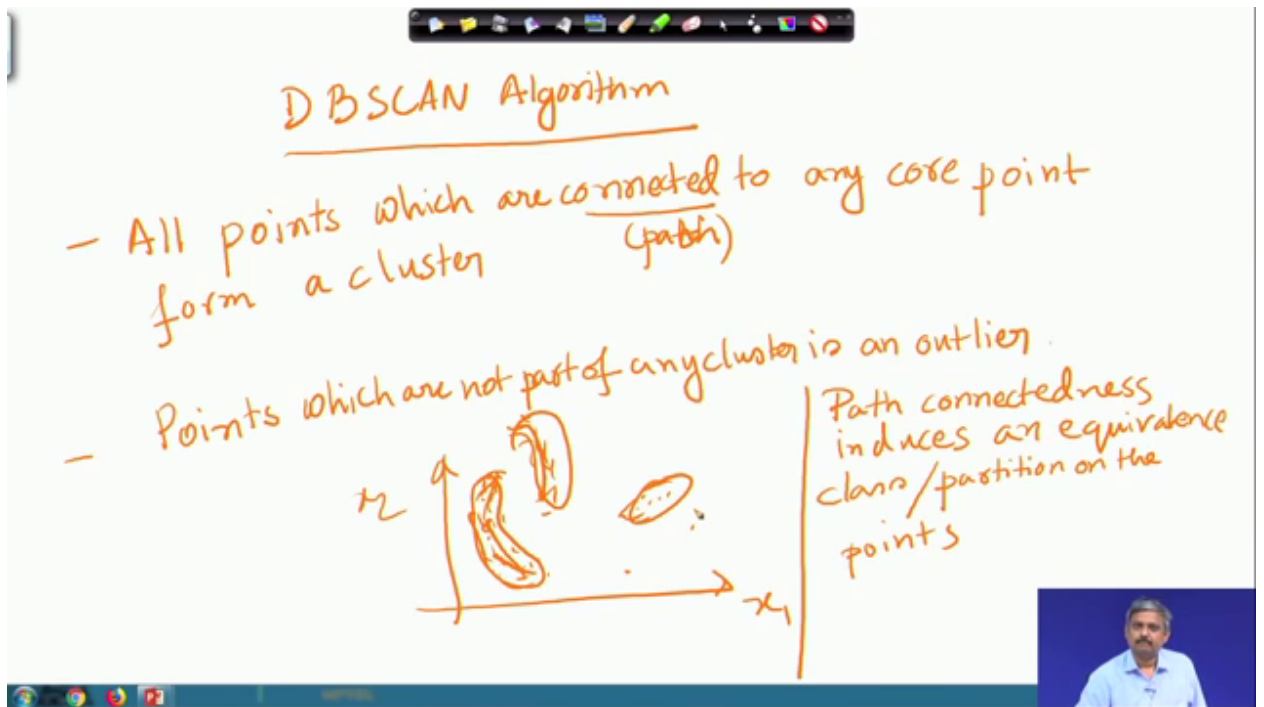 DBSCAN Algorithm
- All points which are connected to any core point
(path)
form a cluster
- Points which are not part of any cluster is an outlier.
Path connectedness
induces an equivalence
class/partition on the
points
x₁